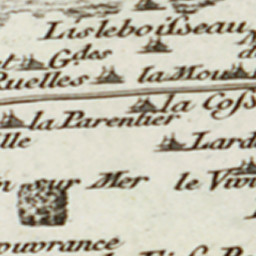 Lisleboisseau
et Gdes
Ruelles la Mou
la Coss
la Parentier
lle Lard
sur Mer le Vivi
ouvrance